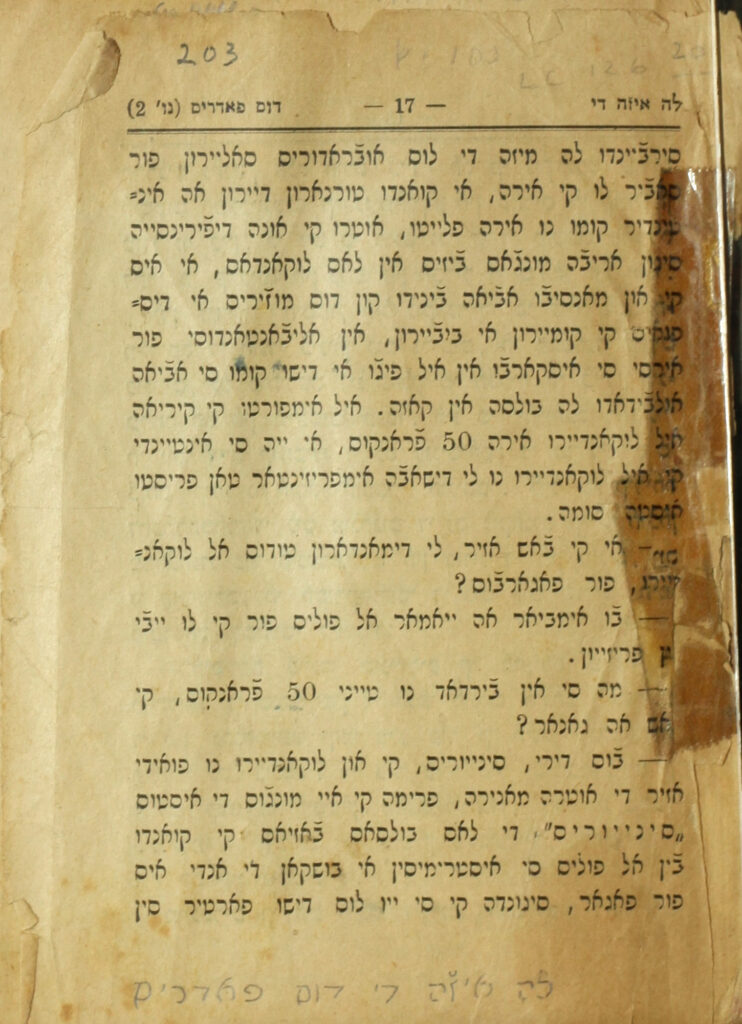 203
לה איזה די — 17 — דוס פאדריס (נו' 2)
סירב̈יינדו לה מיזה די לוס אוב̈ראדוריס סאליירון פור
סאב̈יר לו קי אירה, אי קואנדו טורנארון דיירון אה אינ=
טינדיר קומו נו אירה פלייטו, אוטרו קי אונה דיפ̈ירינסייה
סיגון אריב̈ה מונג̈אס ב̈יזיס אין לאס לוקאנדאס, אי איס
קי און מאנסיבו אב̈יאה ב̈ינידו קון דוס מוז̈יריס אי דיס=
פואיס קי קומיירון אי ביב̈יירון, אין אליב̈אנטאנדוסי פור
אירסי סי איסקארבו אין איל פיג̈ו אי דישו קומו סי אב̈יאה
אולב̈ידאדו לה בולסה אין קאזה. איל אימפורטו קי קיריאה
איל לוקאנדיירו אירה 50 פ̈ראנקוס, אי ייה סי אינטיינדי
קי איל לוקאנדיירו נו לי דישאב̈ה אימפריזינטאר טאן פריסטו
איסטה סומה.
— אי קי ב̈אש אזיר, לי דימאנדארון טודוס אל לוקאנ=
דיירו, פור פאגארב̈וס?
— ב̈ו אימביאר אה ייאמאר אל פוליס פור קי לו ייב̈י
אין פריזייון.
— מה סי אין ב̈ירדאד נו טייני 50 פ̈ראנקוס, קי
ב̈אש אה גאנאר?
— ב̈וס דירי, סינייוריס, קי און לוקאנדיירו נו פואידי
אזיר די אוטרה מאנירה, פרימה קי איי מונג̈וס די איסטוס
„סינייוריס" די לאס בולסאס ב̈אזיאס קי קואנדו
ב̈ין אל פוליס סי איסטרימיסין אי בושקאן די אנדי איס
פור פאגאר, סיגונדה קי סי ייו לוס דישו פארטיר סין
לה איז̈ה די דוס פאדריס